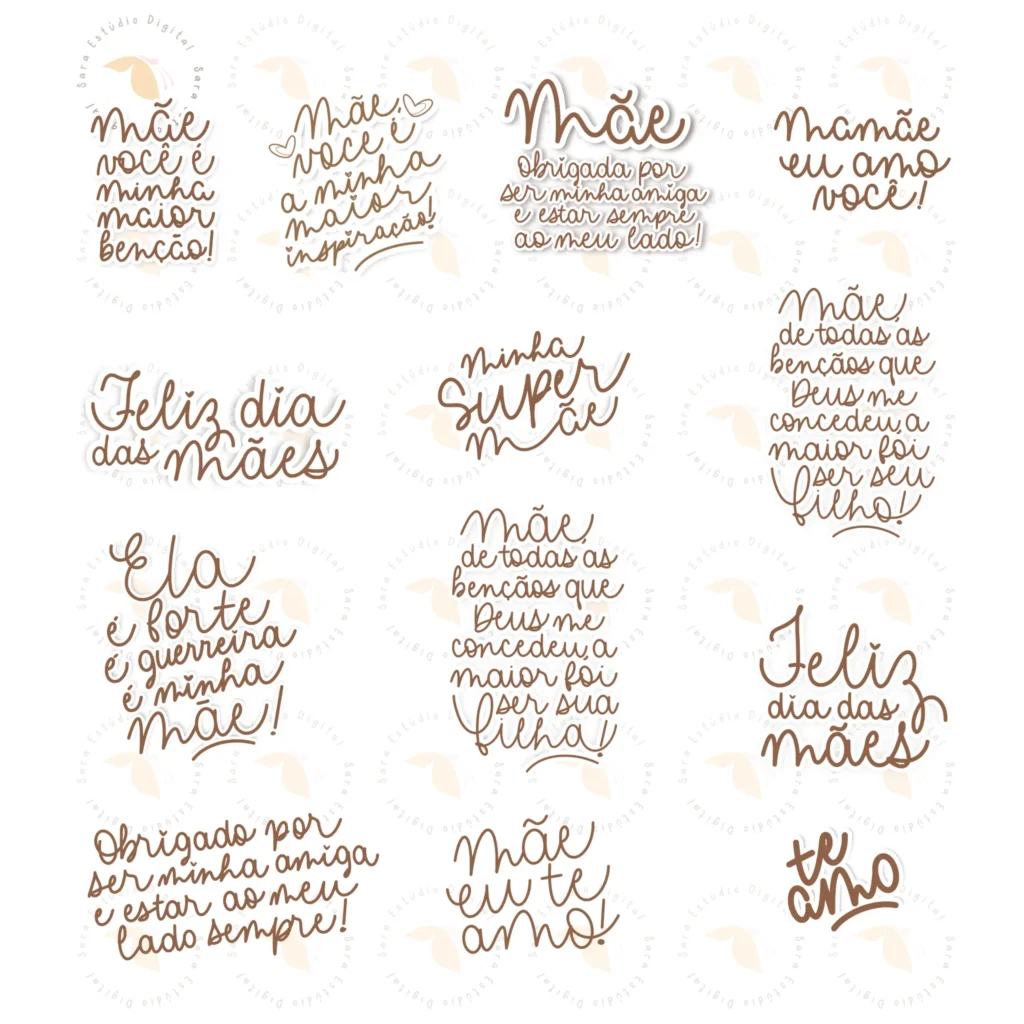 Sara Estúdio Digital
Mãe
você é
minha
maior
benção!
Mãe,
você é
a minha
maior
inspiração!
Mãe
Obrigada por
ser minha amiga
e estar sempre
ao meu lado!
Mamãe
eu amo
você!
Feliz dia
das mães
minha
super
mãe
Mãe,
de todas as
bençãos que
Deus me
concedeu, a
maior foi
ser seu
filho!
Ela
é forte
é guerreira
é minha
mãe!
Mãe,
de todas as
bençãos que
Deus me
concedeu, a
maior foi
ser sua
filha!
Feliz
dia das
mães
Obrigado por
ser minha amiga
e estar ao meu
lado sempre!
Mãe
eu te
amo!
te
amo